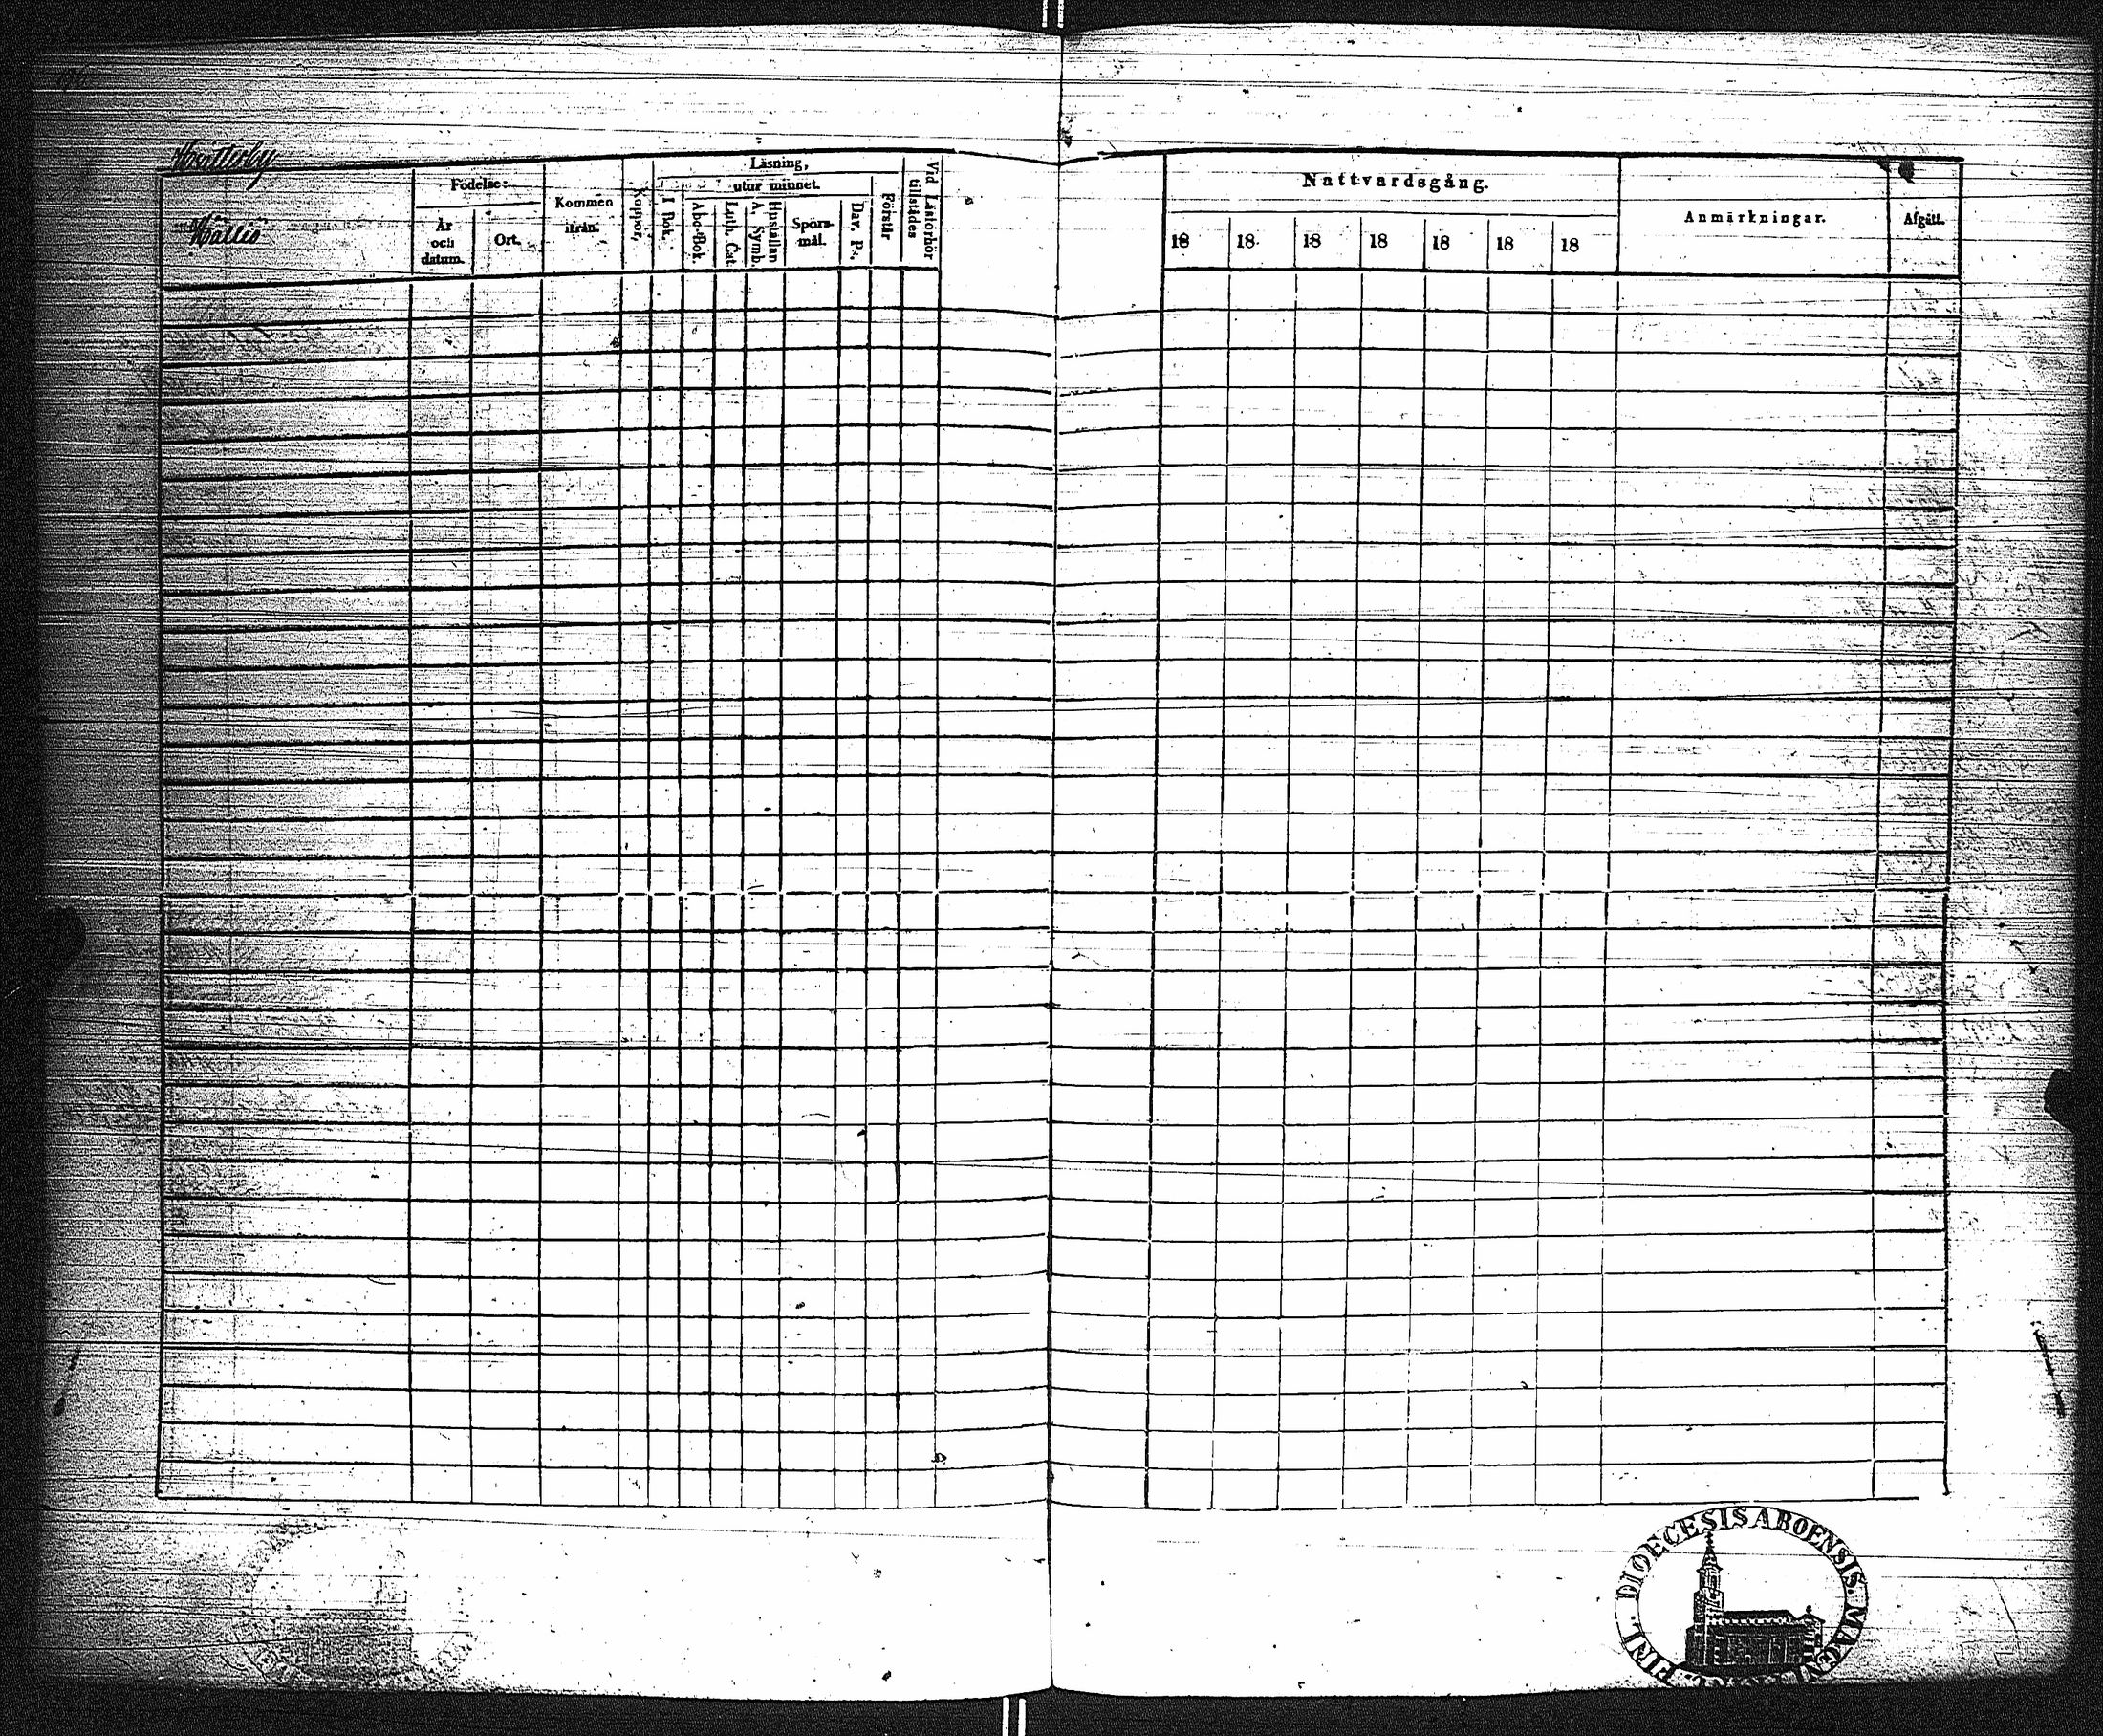 Kallio
Födelse:
År och datum.
Ort.
Kommen ifrån.
Koppor,
Läsning,
utur minnet.
I Bok.
Abc-Bok.
Luth. Cat.
Hustaflan A. Symb.
Spörs-mål.
Dav. Ps.
Förstår
Vid Läsförhör tillstädes
Nattvardsgång.
18 18 18 18 18 18 18
Anmärkningar.
Afgått.
FINL. DIOECESIS ABOENSIS. MAGNI